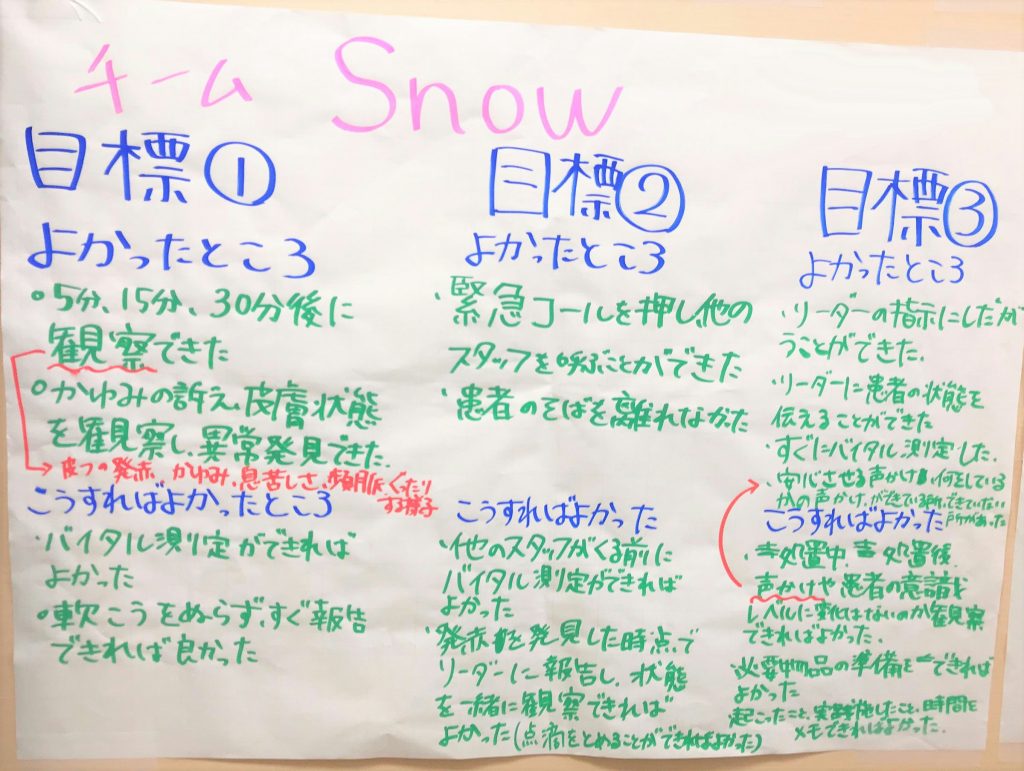 チーム Snow
目標①
よかったところ
○5分、15分、30分後に
観察できた
○かゆみの訴え、皮膚状態
を観察し、異常発見できた。
→皮フの発赤、かゆみ、息苦しさ、頻脈、ぐったり
する様子
こうすればよかったところ
・バイタル測定ができれば
よかった
○軟こうをぬらず、すぐ報告
できれば良かった
目標②
よかったところ
・緊急コールを押し、他の
スタッフを呼ぶことができた
・患者のそばを離れなかった
こうすればよかった
・他のスタッフがくる前に
バイタル測定ができれば
よかった
・発赤を発見した時点で
リーダーに報告し、状態
を一緒に観察できれば
よかった(点滴をとめることができればよかった)
目標③
よかったところ
・リーダーの指示にしたが
うことができた.
・リーダーに患者の状態を
伝えることができた
・すぐにバイタル測定した.
・安心させる声かけ 何をしている
かの声かけ、ができている所、できていない
所があった
こうすればよかった
・処置中、処置後、
声かけや患者の意識
レベルに変化はないのか観察
できればよかった.
必要物品の準備をできれば
よかった
起こったこと、実施したこと、時間を
メモできればよかった.